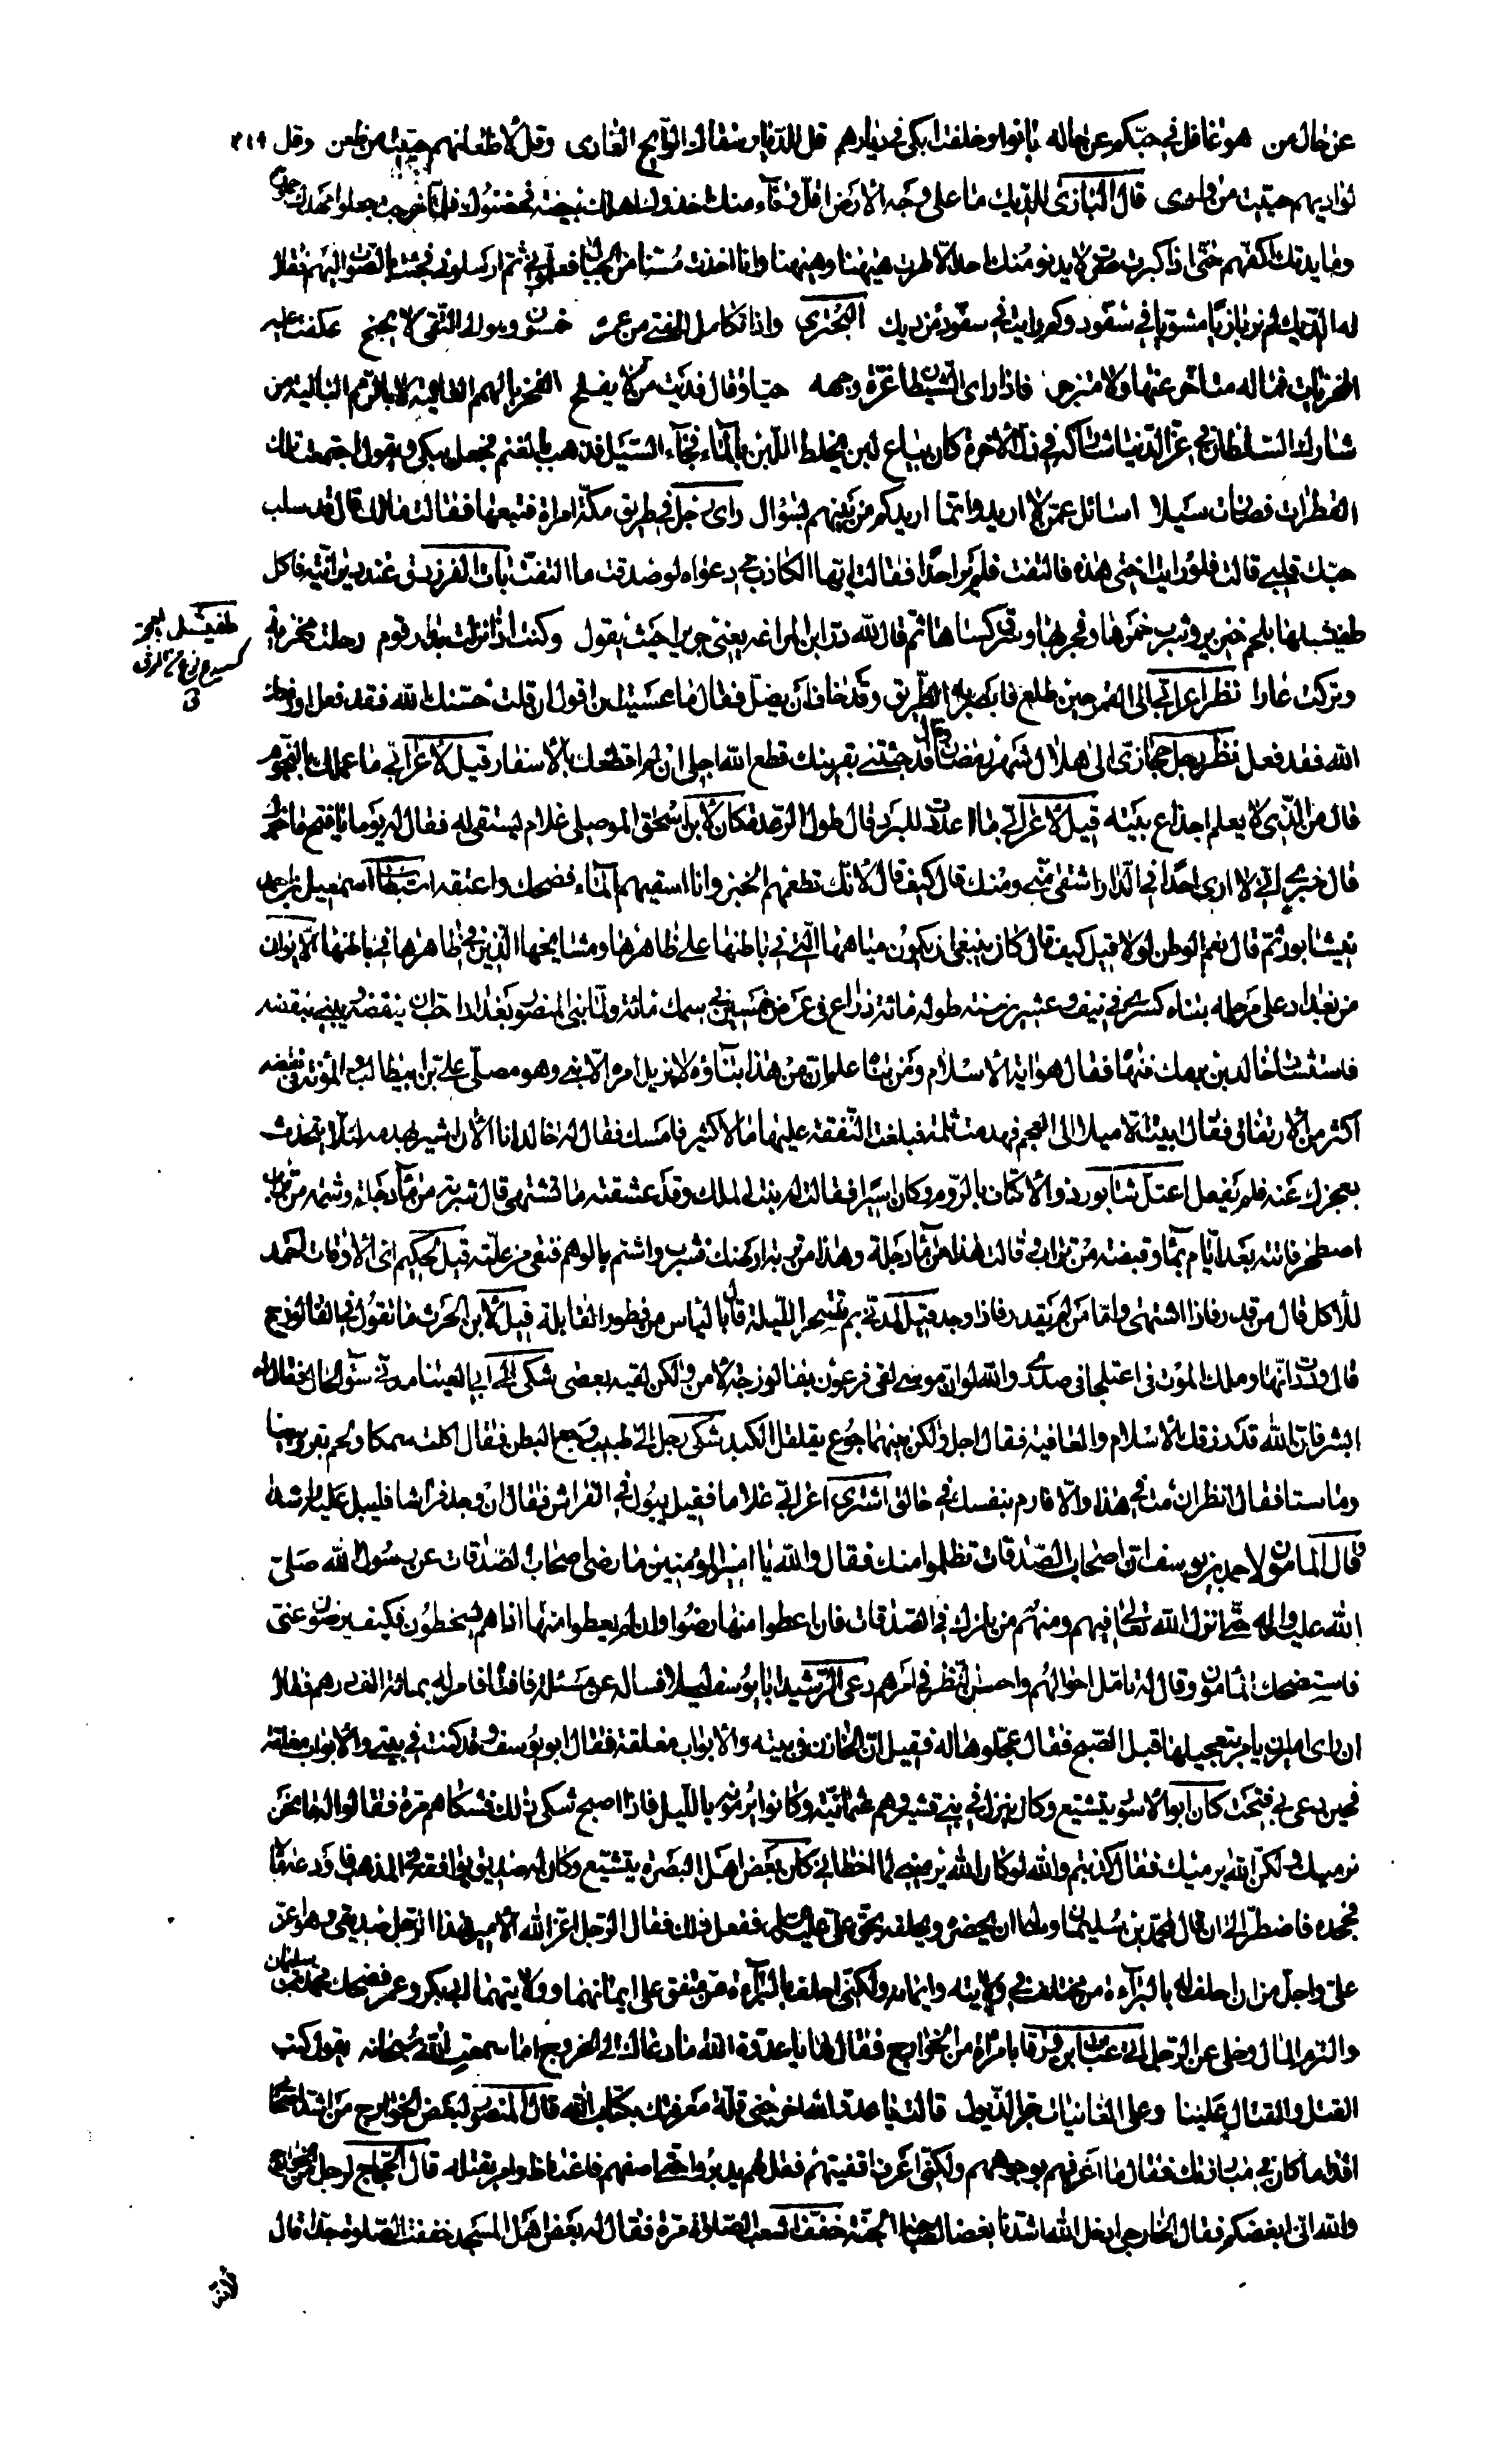 عن حال من هو غافل في حبكم عن حاله بانوا وخلفت ابكي في ديارهم قل للديار سقاك الرائح الغادي وقل لاظعانهم حييت من ظعن وقل ٢١٩
لواديهم حييت من وادي قال البازي للديك ما على وجه الارض اقل وفاء منك اخذوك اهلك بيضة فحضنوك فلما خرجت جعلوا مهدك
وما يدتك اكفهم حتى اذا كبرت صرت لا يدنو منك احد الا طرت هيهنا وهيهنا وانا اخذت مسنا من الجبال فعلموني ثم ارسلوني فجئت بالصيد اليهم فقال
له الديك لم نر بازيا مشويا في سفود وكم رايت في سفود من ديك البحتري واذا تكامل للفتى من عمره خمسون وهو الى التقى لا يجنح عكفت عليه
المخزيات فما له متاخر عنها ولا متزحزح فاذا راى الشيطان غرة وجهه حيا وقال فديت من لا يفلح الفخر بالهمم العالية لا بالرمم البالية من
شارك السلطان في عز الدنيا شاركه في ذل الاخرة كان يباع لبن يخلط اللبن بالماء فجاء السيل فذهب بالغنم فجعل يبكي ويقول اجتمعت تلك
القطرات فصارت سيلا اسائل عمن لا اريد وانما اريدكم من بينهم بسؤال راى رجل في طريق مكة امراة فتبعها فقالت مالك قال قد سلب
حبك قلبي قالت فلو رايت اختي هذه فالتفت فلم ير احدا فقالت ايها الكاذب في دعواه لو صدقت ما التفت بات الفرزدق عند ديرانية فاكل
طفيشلها بلحم خنزير وشرب خمرها وفجر بها وسرق كساءها ثم قال لله در ابن المراغه يعني جريرا حيث يقول وكنت اذا نزلت بدار قوم رحلت بخزية
وتركت عارا نظر اعرابي الى القمر حين طلع فابصر به الطريق وقد خاف ان يضل فقال ما عسيت ان اقول ان قلت حسنك الله فقد فعل او
الله فقد فعل نظر رجل حجازي الى هلال شهر رمضان وقال قد جئتني بقرينك قطع الله اجلي ان لم اقطعك بالاسفار قيل لاعرابي ما علمك بالنجوم
قال من الذي لا يعلم اجذاع بيته قيل لاعرابي ما اعددت للبرد قال طول الرعدة كان لابن اسحق الموصلي غلام يستقي له فقال له يوما يا فتح ما خبرك
قال خبري اني لا ارى احدا في الدار اشقى مني ومنك قال كيف قال لانك تطعمهم الخبز وانا اسقيهم الماء فضحك واعتقه اسمعيل بن احمد
نيشابور ثم قال نعم الوطن لولا قيل كيف قال كان ينبغي ان يكون مياهها التي في باطنها على ظاهرها ومشايخها الذين في ظاهرها في باطنها الايوان
من بغداد على مرحلة بناه كسرى في نيف وعشرين سنة طوله مائة ذراع في عرض خمسين في سمك مائة ولما بنى المنصور بغداد احب ان ينقضه ويبني بنقضه
فاستشار خالد بن برمك فنهاه فقال هو اية الاسلام ومن بناه علم ان من هذا بناؤه لا يزيل امره الا نبي وهو مصلى علي بن ابي طالب والمؤنة في نقضه
اكثر من الارتفاق فقال ابيت الا ميلا الى العجم فهدمت ثلمة فبلغت النفقة عليها مالا كثيرا فامسك فقال له خالد انا الان اشير بهدمه لئلا يتحدث
بعجزك عنه فلم يفعل اعتل شابور ذو الاكتاف بالروم وكان اسيرا فقالت له بنت الملك وقد عشقته ما تشتهي قال شربة من ماء دجلة وشمة من تراب
اصطخر فاتته بعد ايام بماء وقبضة من تراب وقالت هذا من ماء دجلة وهذا من تربة ارضك فشرب واشتم بالوهم فنقى من علته قيل لحكيم اي الاوقات احمد
للاكل قال من قدر فاذا اشتهى واما من لم يقدر فاذا وجد قيل لمدني بم تتسحر الليلة قال بالياس من فطور القابلة قيل لابن الحرث ما تقول في الفالوذج
قال وددت انها وملك الموت في اعتلجا في صدري والله لو ان موسى لقي فرعون بفالوزجة لامن ولكن لقيه بعصى شكى الى ابي العيناء مدني سوء الحال فقال له
ابشر فان الله قد رزقك الاسلام والعافية فقال اجل ولكن بينهما جوع يقلقل الكبد شكى رجل الى طبيب وجع البطن فقال اكلت سمكا ولحم بقر وبيضا
وماستا فقال انظر ان مت في هذا والا فارم بنفسك في حالق اشترى اعرابي غلاما فقيل يبول في الفراش فقال ان وجد فراشا فليبل عليه
قال المامون لاحمد بن يوسف ان اصحاب الصدقات تظلموا منك فقال والله يا امير المومنين ما رضى اصحاب الصدقات عن رسول الله صلى
الله عليه واله حتى انزل الله تعالى فيهم ومنهم من يلمزك في الصدقات فان اعطوا منها رضوا وان لم يعطوا منها اذا هم يسخطون فكيف يرضون عني
فاستضحك المامون وقال له تامل احوالهم واحسن النظر في امرهم دعى الرشيد ابا يوسف ليلا فساله عن مسئلة فافتاه فامر له بمائة الف درهم فقال
ان راى امير المومنين يامر بتعجيلها قبل الصبح فقال عجلوها له فقيل ان الخازن في بيته والابواب مغلقة فقال ابو يوسف وقد كنت في بيتي والابواب مغلقة
فحين دعى بي فتحت كان ابو الاسود يتشيع وكان ينزل في بني قشير وهم عثمانية وكانوا يرمونه بالليل فاذا اصبح شكى ذلك فشكاهم مرة فقالوا له ما نحن
نرميك ولكن الله يرميك فقال كذبتم والله لو كان الله يرميني لما اخطاني كان بعض اهل البصرة يتشيع وكان له صديق يوافقه في المذهب فاودعه مالا
فجحده فاضطر الى ان قال لمحمد بن سليمان وساله ان يحضره ويحلفه بحق علي عليه السلم ففعل ذلك فقال الرجل اعز الله الامير هذا الرجل صديقي وهو اعز
علي واجل من ان احلف له بالبراءة من مختلف في ولايته وايمانه ولكني احلف بالبراءة من متفق على ايمانهما وولايتهما ابي بكر وعمر فضحك محمد بن سليمان
والتزم المال وخلى عن الرجل اتى عتاب بن ورقا بامراة من الخوارج فقال لها يا عدوة الله ما دعاك الى الخروج اما سمعت الله سبحانه يقول كتب
القتل والقتال علينا وعلى الغانيات جر الذيول قالت يا عدو الله اخرجني قلة معرفتك بكتاب الله قال المنصور لبعض الخوارج من اشد اصحابي
اقداما كان في مبارزتك فقال ما اعرفهم بوجوههم ولكني اعرف اقفيتهم فقل لهم يدبروا حتى اصفهم فاغتاظ وامر بقتله قال الحجاج لرجل من الخوارج
والله اني ابغضكم فقال الخارجي ادخل الله اشدنا بغضا لصاحبه الجنة خفف اشعب الصلوة مرة فقال له بعض اهل المسجد خففت الصلوة جدا قال
طفيشل
لانه